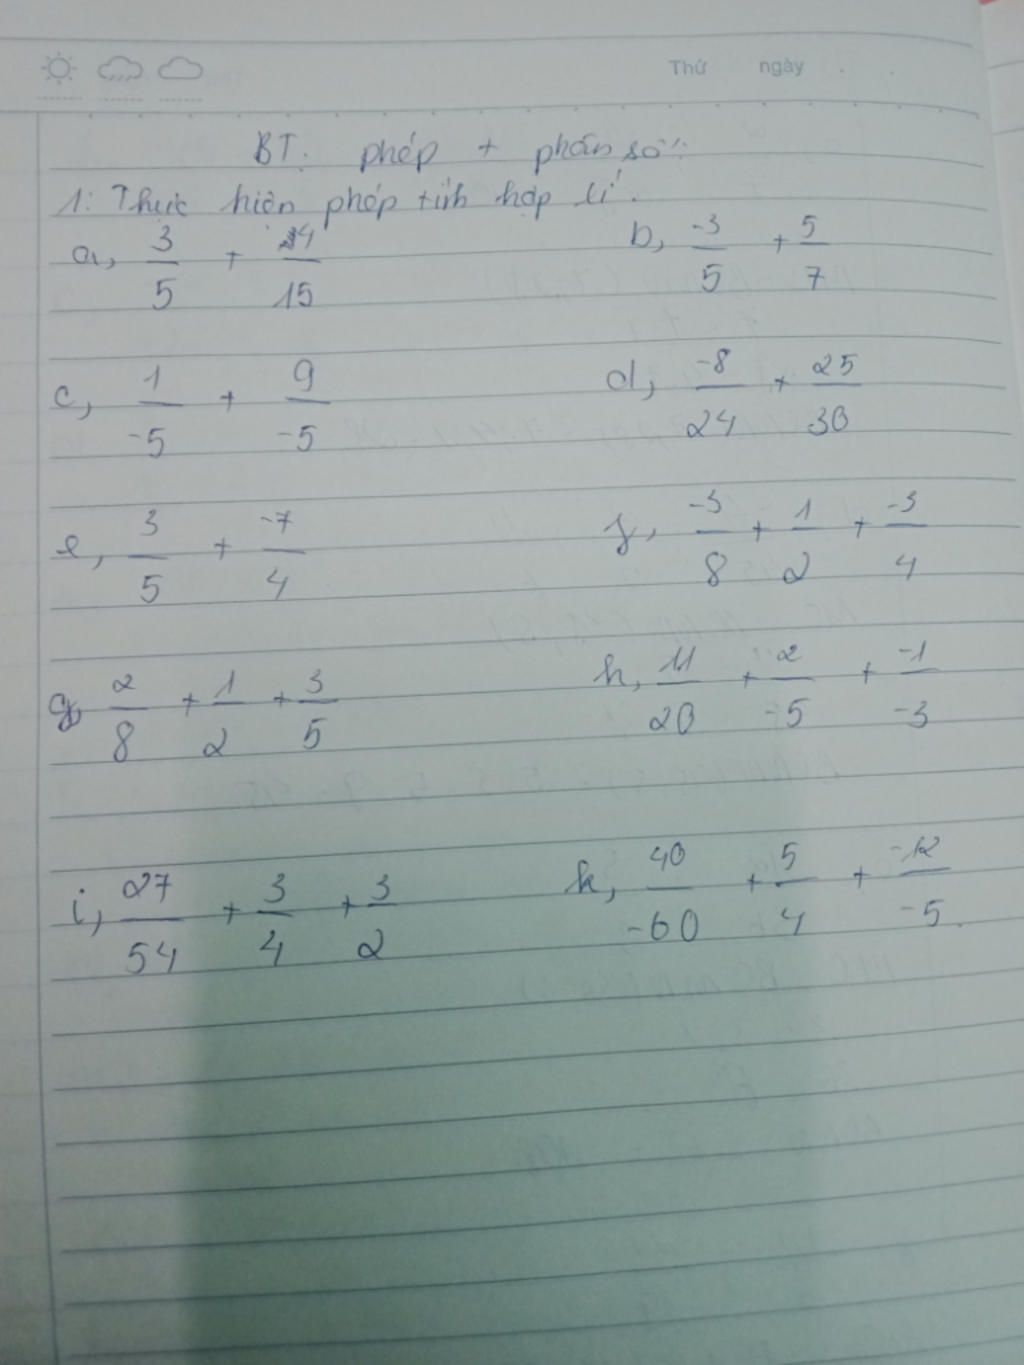 Thứ ngày
BT: phép + phân số:
1: Thực hiện phép tính hợp lí.
a, 3/5 + /15 b, -3/5 + 5/7
c, 1/-5 + 9/-5 d, -8/24 + 25/30
e, 3/5 + -7/4 f, -3/8 + 1/2 + -3/4
g, 2/8 + 1/2 + 3/5 h, 11/20 + 2/-5 + -1/-3
i, 27/54 + 3/4 + 3/2 k, 40/-60 + 5/4 + -12/-5